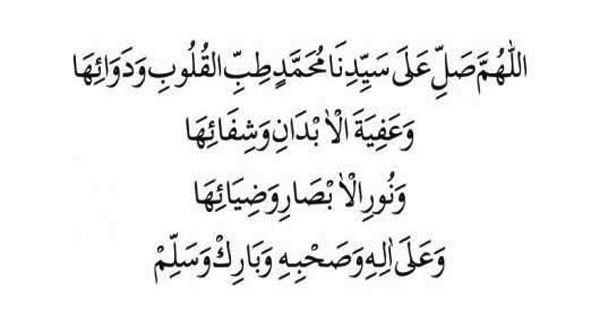 اللّٰهُمَّ صَلِّ عَلَى سَيِّدِنَا مُحَمَّدٍ طِبِّ القُلُوبِ وَدَوَائِهَا
وَعَفِيَةَ الْاٰبْدَانِ وَشِفَائِهَا
وَنُورِ الْاٰبْصَارِ وَضِيَائِهَا
وَعَلَى اٰلِهِ وَصَحْبِهِ وَبَارِكْ وَسَلِّمْ